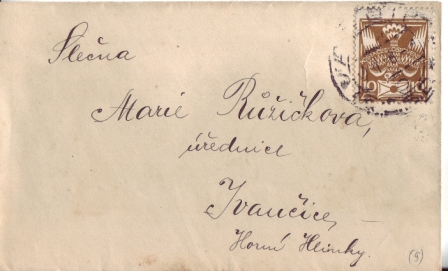 Slečna
Marie Růžičková,
úřednice
Ivančice,
Horní Hlinky.
10 10
(9)